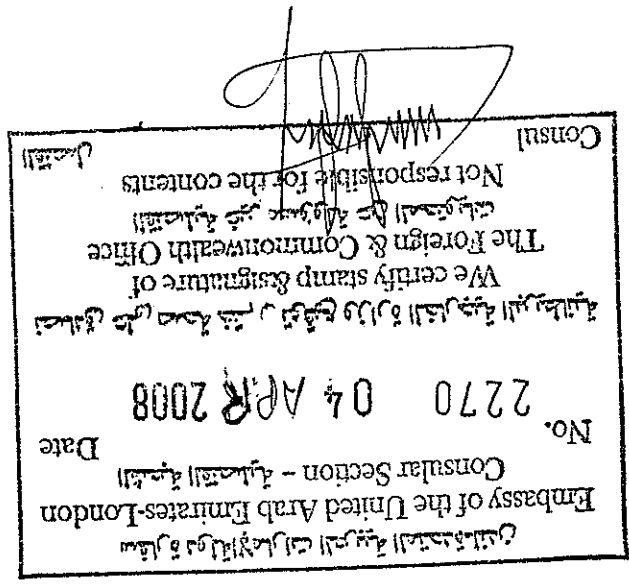 سفارة دولة الإمارات العربية المتحدة-لندن
Embassy of the United Arab Emirates-London
Consular Section – الشعبة القنصلية
No. 2270 04 APR 2008 Date
نصادق على صحة ختم و توقيع وزارة الخارجية البريطانية
We certify stamp &signature of
The Foreign & Commonwealth Office
القنصلية غير مسؤولة عن المحتويات
Not responsible for the contents
Consul القنصل